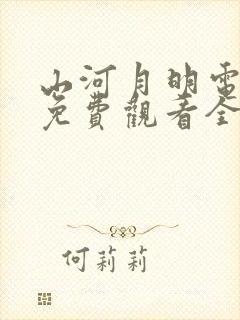 山河月明電
免費觀看全
何莉莉